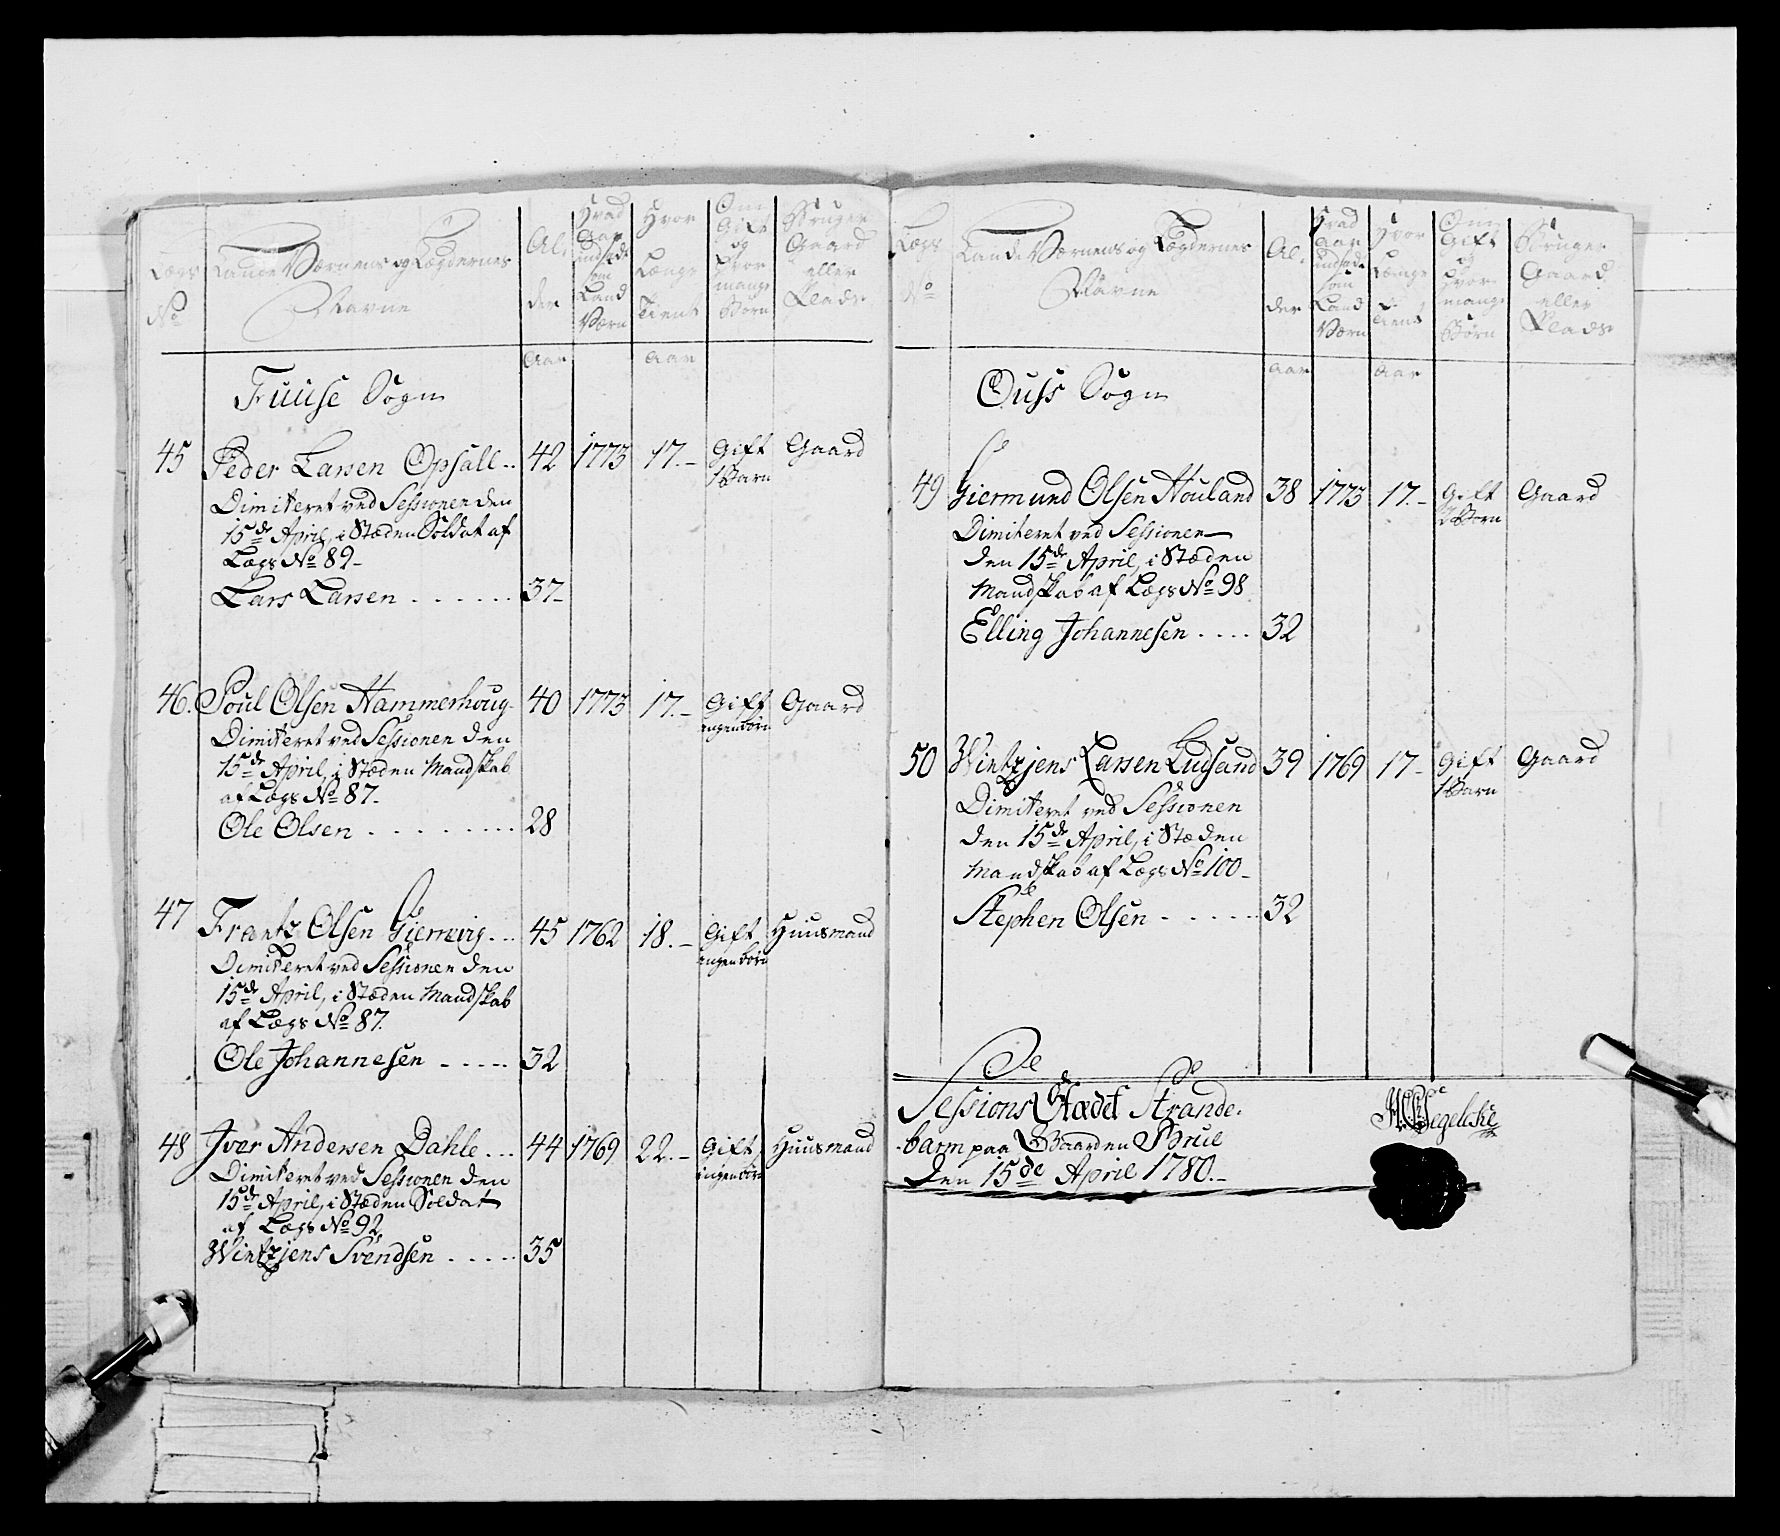 Lægs
No
Lande Værnens og Lægdernes
Navne
Al-
der
Hvad
Aar
indsadt
som
Land
Værn
Hvor
Længe
Tient
Om
Gift
og
hvor
mange
Børn
Bruger
Gaard
eller
Plads
Aar
Aar
Fuuse Sogn
45 Peder Larsen Opsall .. 42 1773 17.- Gift Gaard
1 Barn
Dimiteret ved Sessionen den
15de April, i Stæden Soldat af
Lægs No 89-
Lars Larsen . . . . . . 37-
46. Poul Olsen Hammerhoug- 40 1773 17.- Gift Gaard
ingen børn
Dimiteret ved Sessionen den
15de April, i Stæden Mandskab
af Lægs No 87-
Ole Olsen . . . . . . . . . 28
47 Frantz Olsen Giermvig... 45 1762 18.- Gift Huusmand
ingen børn
Dimiteret ved Sessionen den
15de April, i Stæden Mandskab
af Lægs No 87.
Ole Johannesen ..... 32
48 Iver Andersen Dahle... 44 1769 22.- Gift Huusmand
ingen børn
Dimiteret ved Sessionen den
15de April, i Stæden Soldat
af Lægs No 92,
Wintzjens Svendsen ..... 35
Lægs
No
Lande Værnens og Lægdernes
Navne
Al-
der
Hvad
Aar
indsadt
som
Land
Værn
Hvor
Længe
Tient
Om
Gift
og
hvor
mange
Børn
Bruger
Gaard
eller
Plads
Aar
Aar
Ouss Sogn
49 Giermund Olsen Houland 38 1773 17.- Gift Gaard
2 Børn
Dimiteret ved Sessionen
den 15de April, i Stæden
Mandskab af Lægs No 98
Elling Johannesen .... 32
50 Wintzjens Larsen Ludsand 39 1769 17- Gift Gaard
1 Barn
Dimiteret ved Sessionen
den 15de April, i Stæden
Mandskab af Lægs No 100-
Stephen Olsen ...... 32
Sessions Stædet Strande-
-barm paa Gaarden Brue
Den 15de April 1780.-